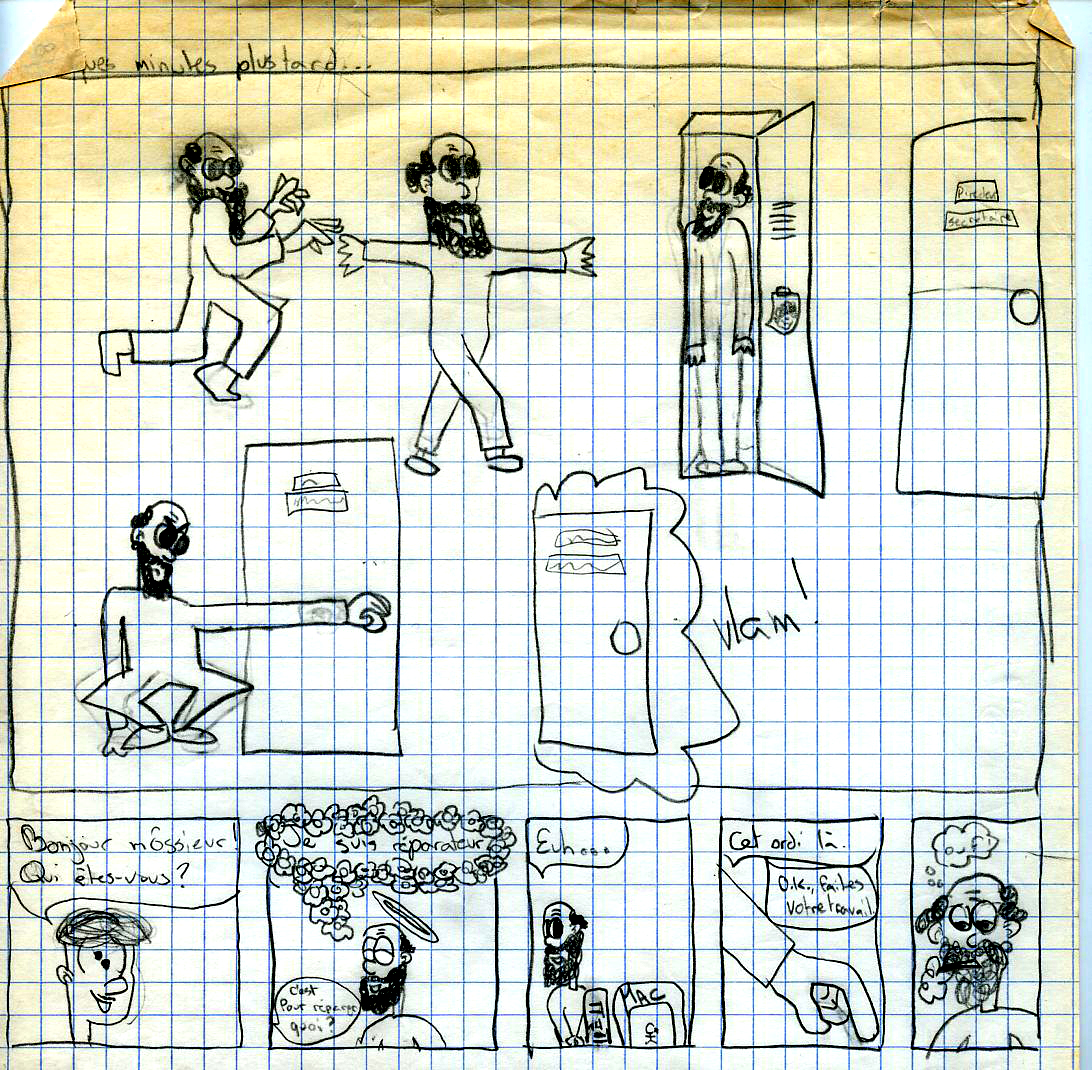 ques minutes plus tard...
Directeur
secretaire
vlam!
Bonjour môssieur!
Qui êtes-vous?
Je suis réparateur
C'est
Pour réparer
quoi?
Euh...
MAC
Cet ordi là.
O.K., faites
votre travail.
ouf!